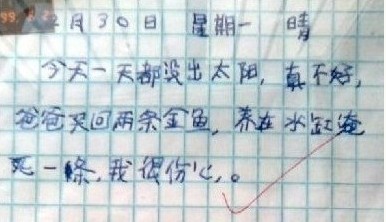 月30日 星期一 晴
今天一天都没出太阳,真不好,
爸爸买回两条金鱼,养在水缸淹
死一條,我很伤心。